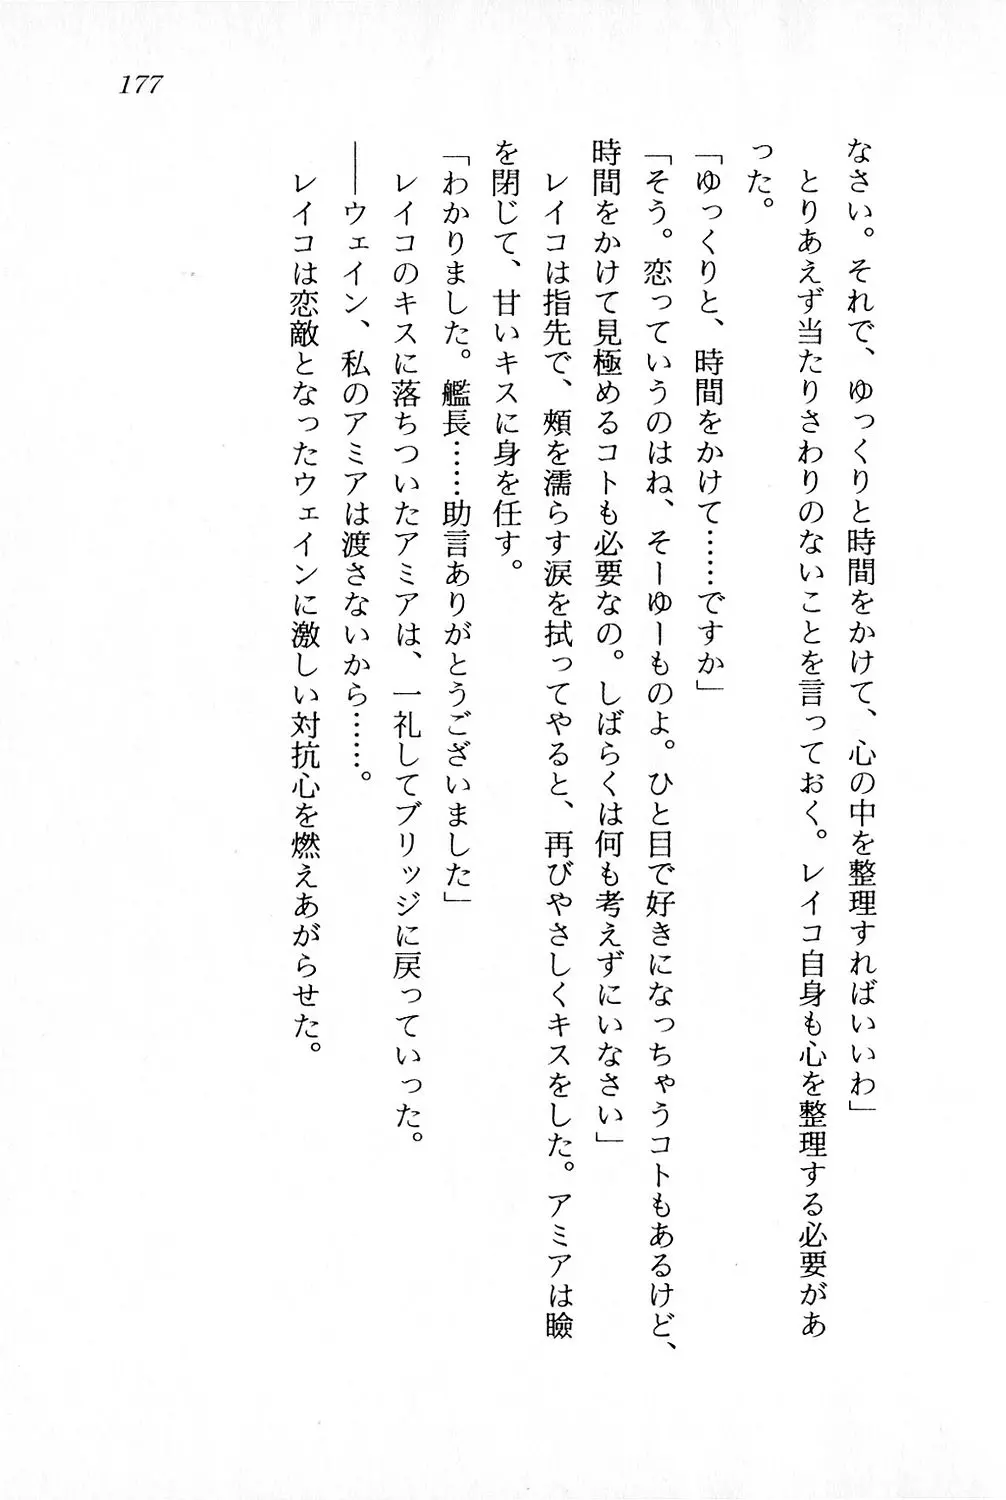 177
なさい。それで、ゆっくりと時間をかけて、心の中を整理すればいいわ」
　とりあえず当たりさわりのないことを言っておく。レイコ自身も心を整理する必要があ
った。
「ゆっくりと、時間をかけて……ですか」
「そう。恋っていうのはね、そーゆーものよ。ひと目で好きになっちゃうコトもあるけど、
時間をかけて見極めるコトも必要なの。しばらくは何も考えずにいなさい」
　レイコは指先で、頰を濡らす涙を拭ってやると、再びやさしくキスをした。アミアは瞼
を閉じて、甘いキスに身を任す。
「わかりました。艦長……助言ありがとうございました」
　レイコのキスに落ちついたアミアは、一礼してブリッジに戻っていった。
――ウェイン、私のアミアは渡さないから……。
　レイコは恋敵となったウェインに激しい対抗心を燃えあがらせた。